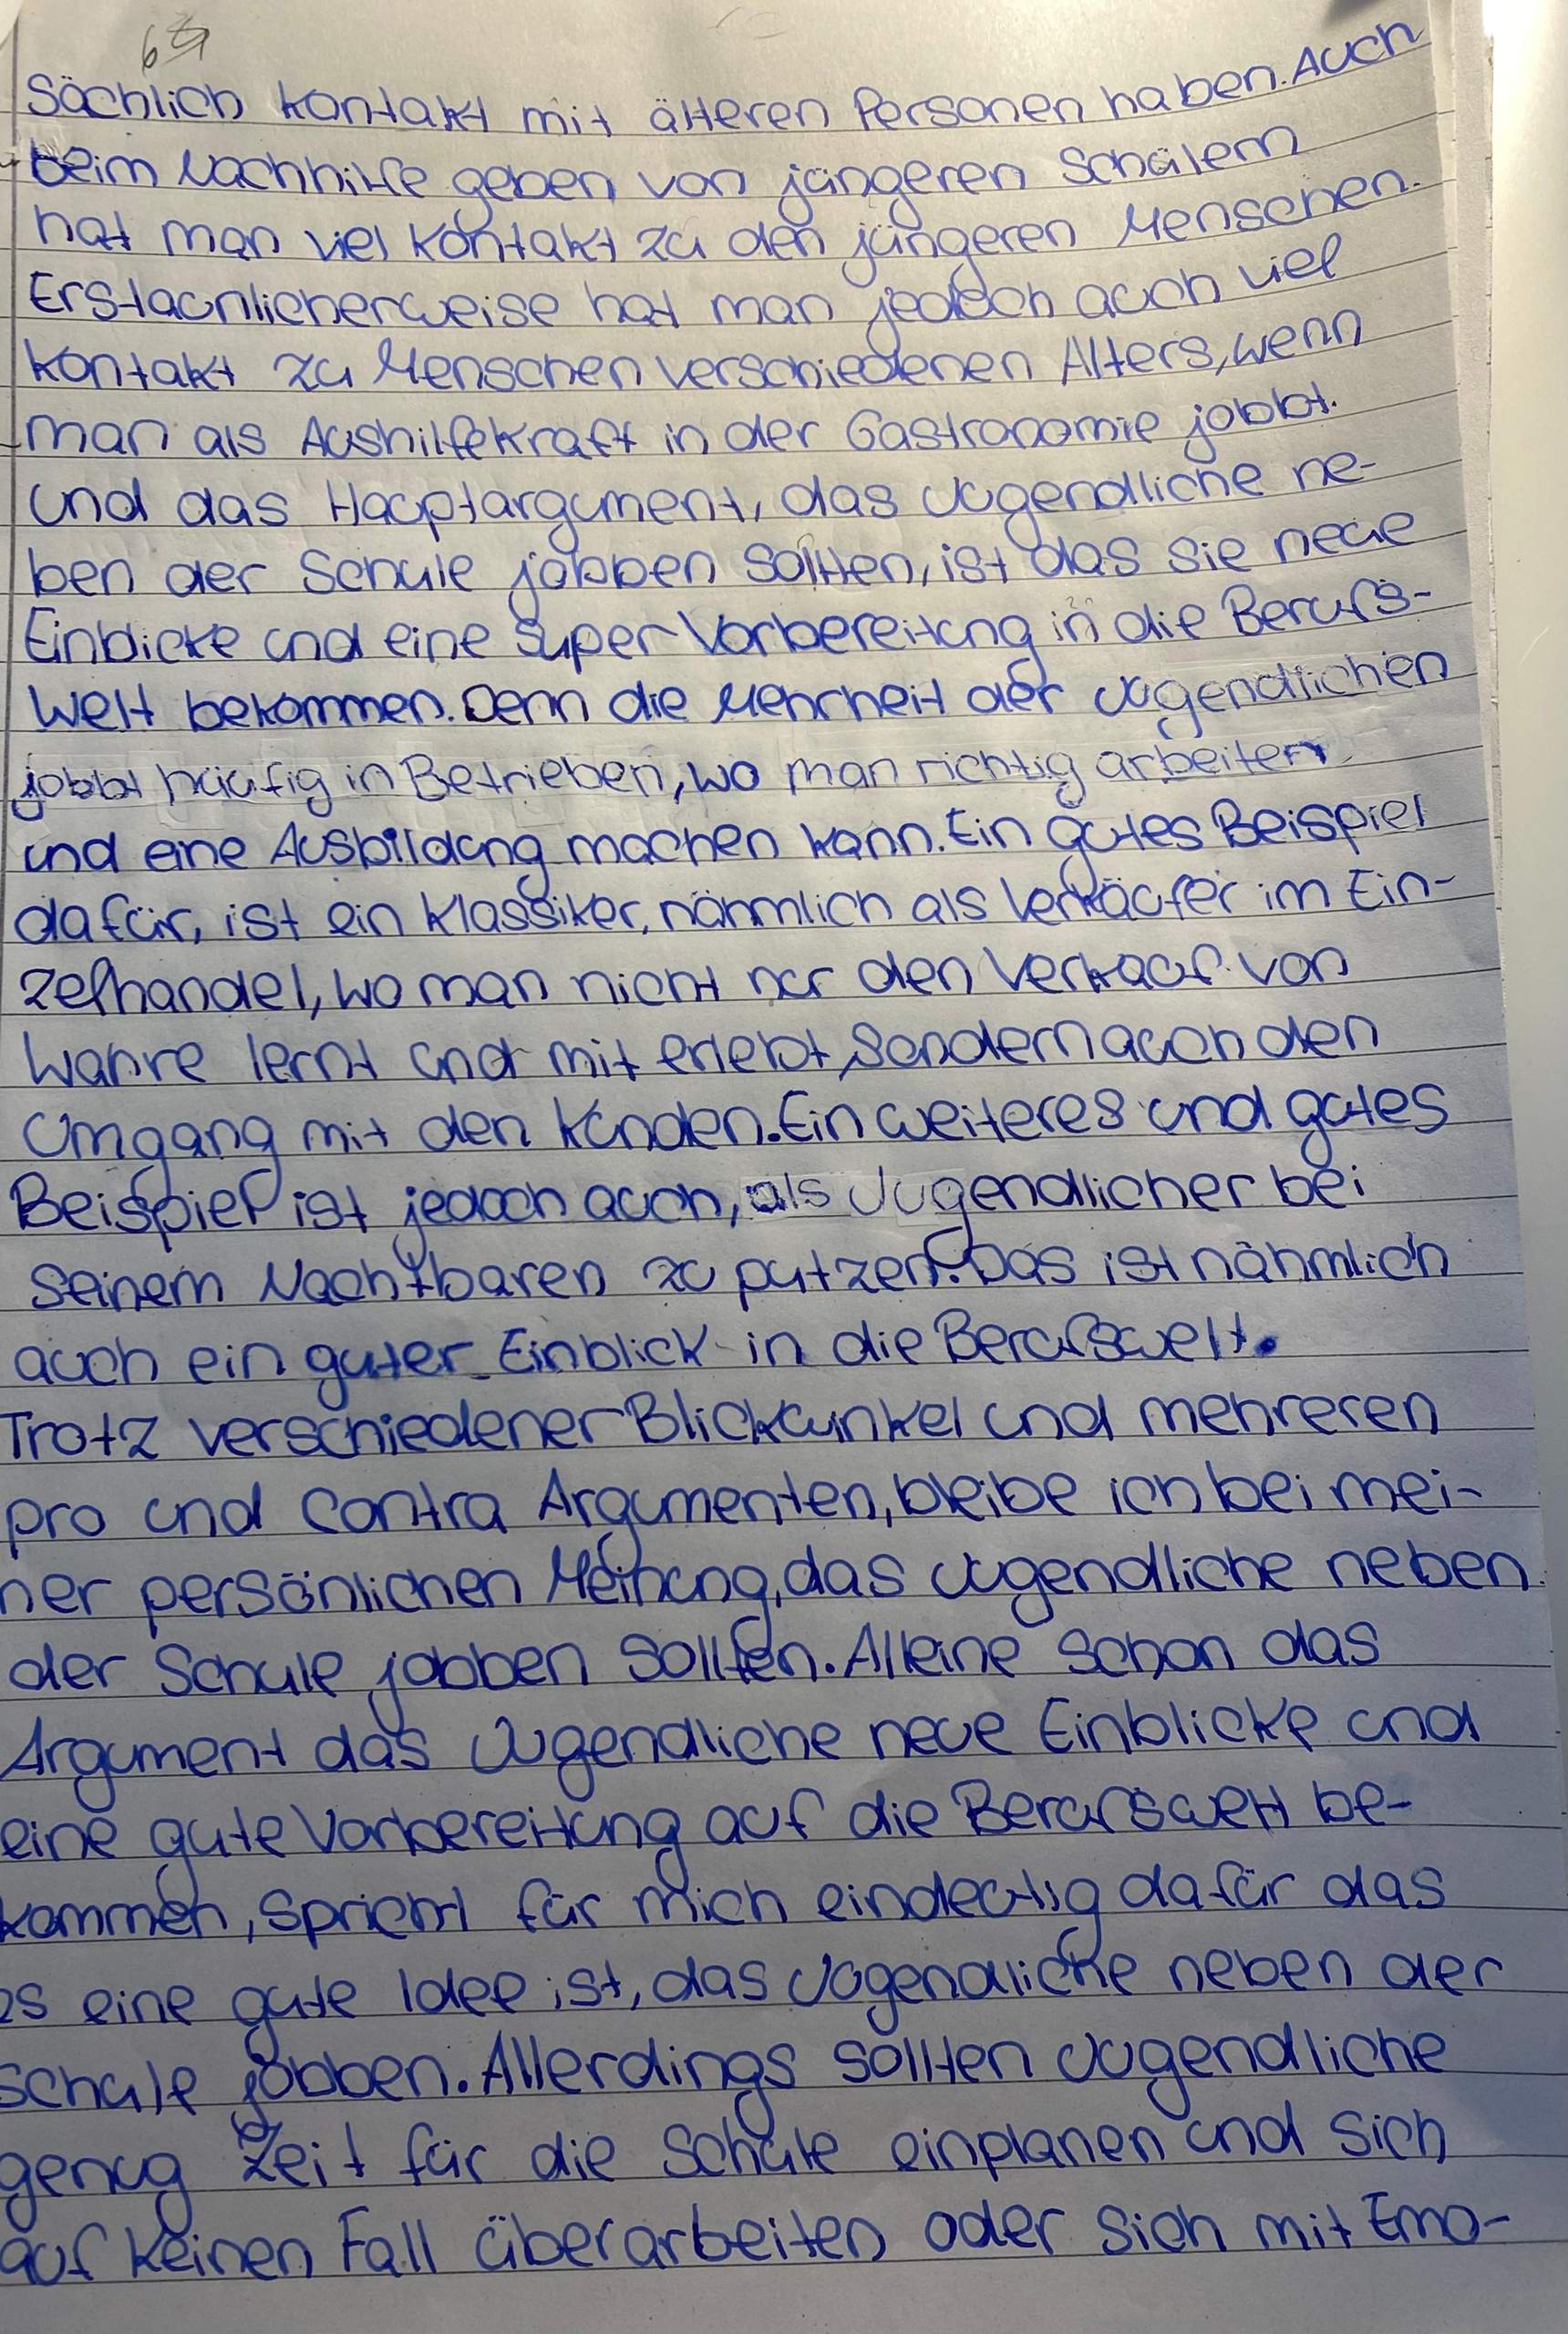 sächlich kontakt mit älteren Personen haben. Auch
beim Nachhilfe geben von jüngeren Schülern
hat man viel Kontakt zu den jüngeren Menschen.
Erstaunlicherweise hat man jedoch auch viel
kontakt zu Menschen verschiedenen Alters, wenn
man als Aushilfekraft in der Gastronomie jobbt.
und das Hauptargument, das Jugendliche ne-
ben der Schule jobben sollten, ist das sie neue
Einblicke und eine super Vorbereitung in die Berufs-
welt bekommen. Denn die Mehrheit der Jugendlichen
jobbt häufig in Betrieben, wo man richtig arbeiten
und eine Ausbildung machen kann. Ein gutes Beispiel
dafür, ist ein klassiker, nähmlich als Verkäufer im Ein-
zelhandel, wo man nicht nur den Verkauf von
Wahre lernt und mit erlebt, sondern auch den
Umgang mit den Kunden. Ein weiteres und gutes
Beispiel ist jedoch auch, als Jugendlicher bei
seinem Nachtbaren zu putzen. Das ist nähmlich
auch ein guter Einblick in die Berufswelt.
Trotz verschiedener Blickwinkel und mehreren
pro und contra Argumenten, bleibe ich bei mei-
ner persönlichen Meinung, das Jugendliche neben
der Schule jobben sollten. Alleine schon das
Argument das Jugendliche neue Einblicke und
eine gute Vorbereitung auf die Berufswelt be-
kommen, spricht für mich eindeutig dafür das
es eine gute Idee ist, das Jugendliche neben der
Schule jobben. Allerdings sollten Jugendliche
genug Zeit für die Schule einplanen und sich
auf keinen Fall überarbeiten oder sich mit Emo-